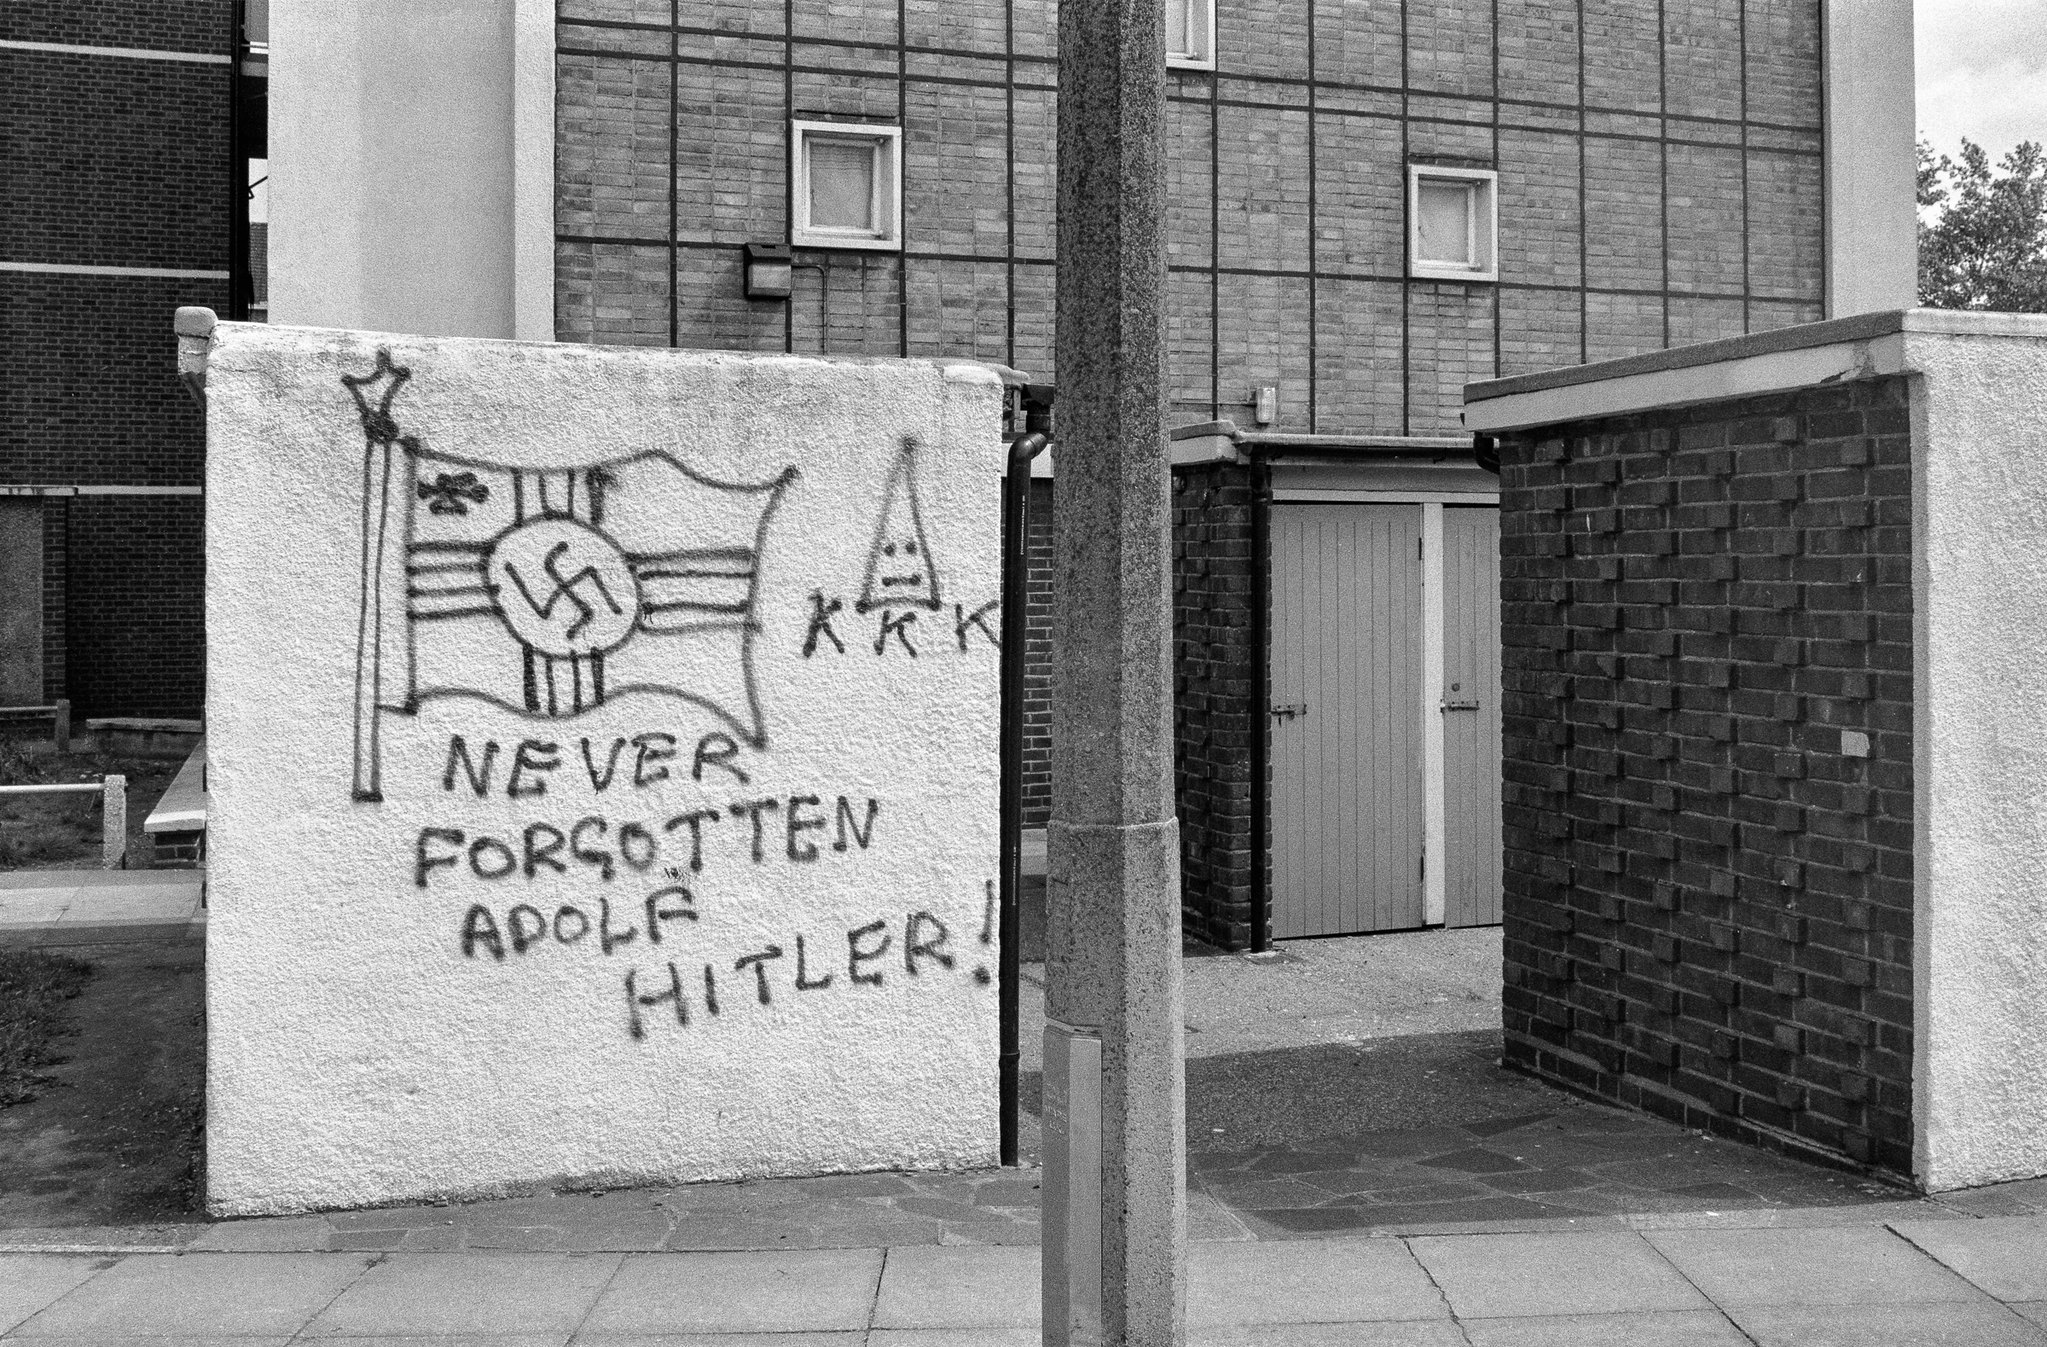 KKK
NEVER
FORGOTTEN
ADOLF
HITLER!